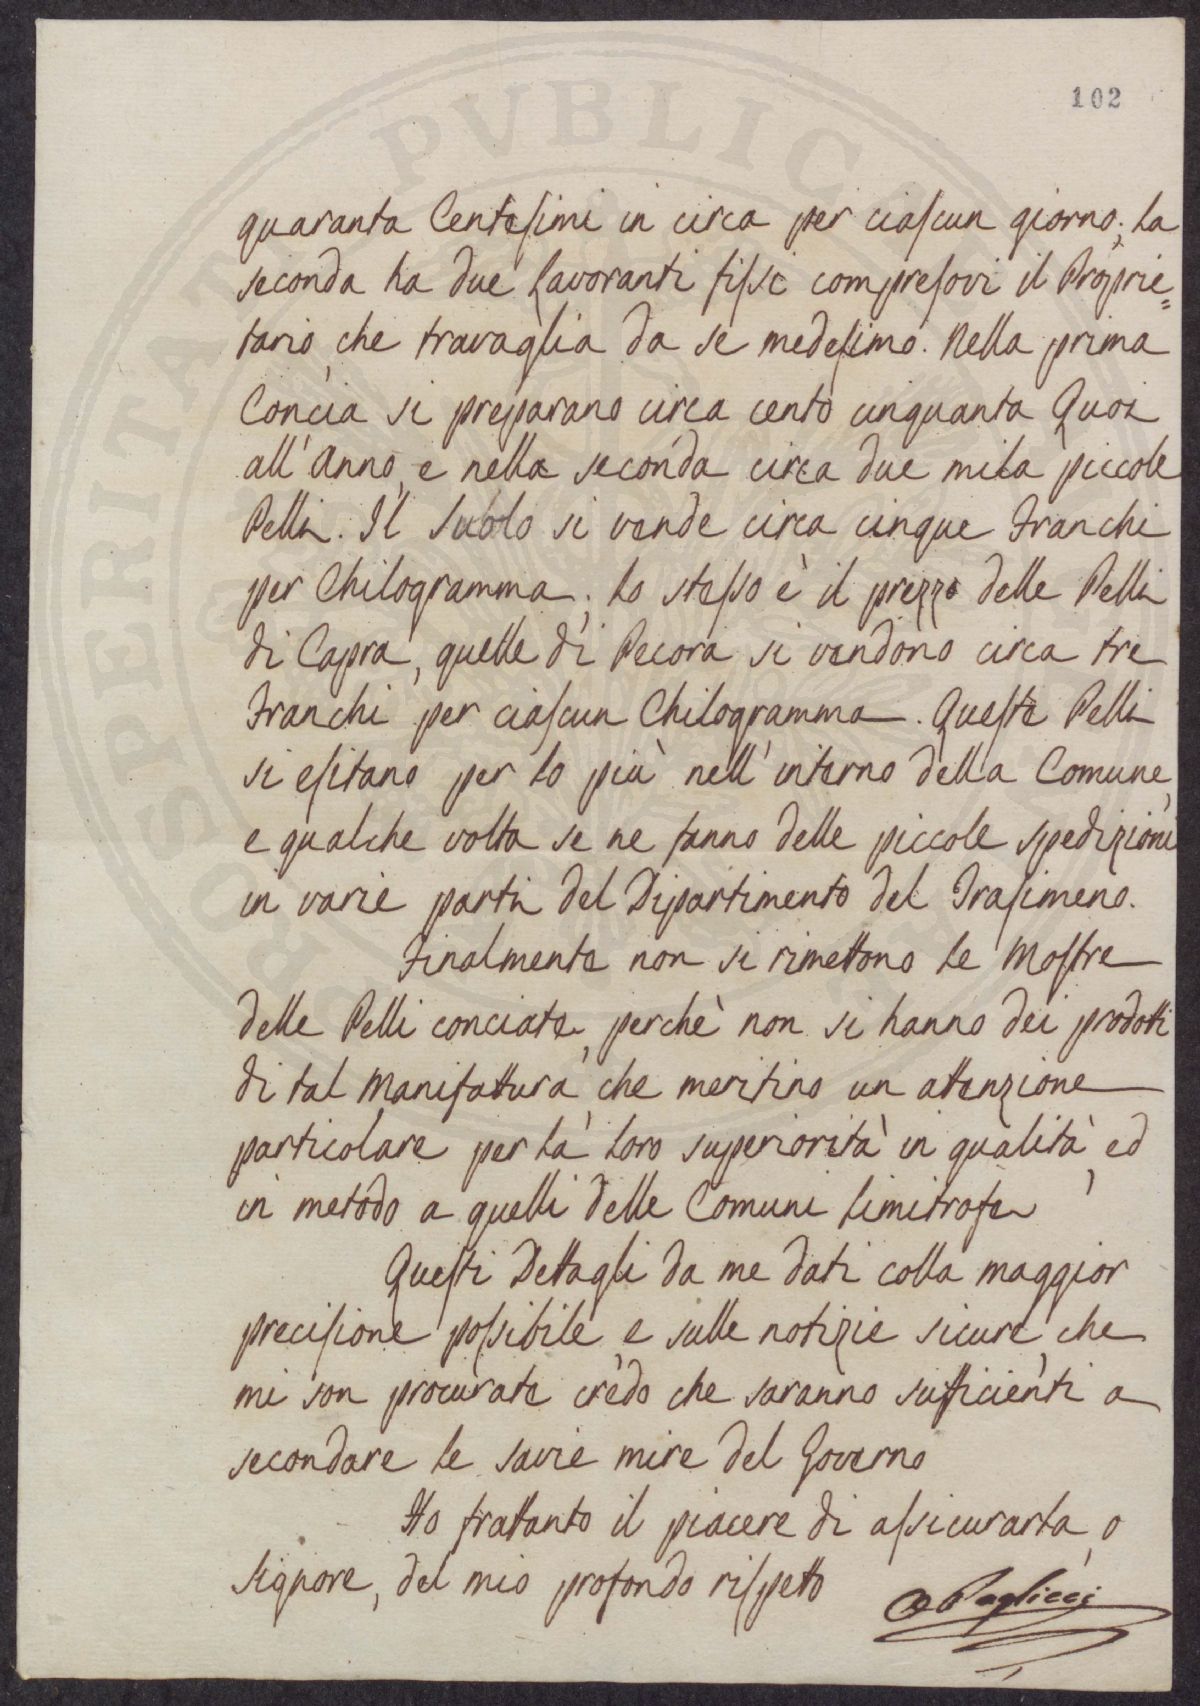 102
quaranta Centesimi in circa per ciascun giorno; la
seconda ha due Lavoranti fissi compresovi il Proprie=
tario, che travaglia da se medesimo. Nella prima
Concia si preparano circa cento cinquanta Quoi
all'Anno, e nella seconda circa due mila piccole
Pelli. Il Suolo si vende circa cinque Franchi
per Chilogramma; lo stesso è il prezzo delle Pelli
di Capra, quelle di Pecora si vendono circa tre
Franchi per ciascun Chilogramma. Queste Pelli
si esitano per lo più nell'interno della Comune,
e qualche volta se ne fanno delle piccole spedizioni
in varie parti del Dipartimento del Trasimeno.
Finalmente non si rimettono le Mostre
delle Pelli conciate, perchè non si hanno dei prodotti
di tal Manifattura, che meritino un attenzione
particolare per la loro superiorità in qualità, ed
in metodo a quelli delle Comuni limitrofe
Questi Dettagli da me dati colla maggior
precisione possibile, e sulle notizie sicure, che
mi son procurate credo che saranno sufficienti a
secondare le savie mire del Governo
Ho frattanto il piacere di assicurarla, o
Signore, del mio profondo rispetto
Pagliccj
PROSPERITATI PVBLICAE